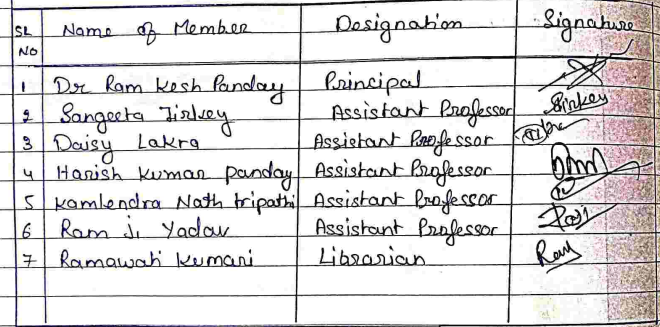 SL NO Name of Member Designation Signature
1 Dr Ram Kesh Panday Principal
2 Sangeeta Tirkey Assistant Professor Tirkey
3 Daisy Lakra Assistant Professor
4 Harish Kumar panday Assistant Professor
5 Kamlendra Nath tripathi Assistant Professor
6 Ram Ji Yadav Assistant Professor
7 Ramawati Kumari Librarian